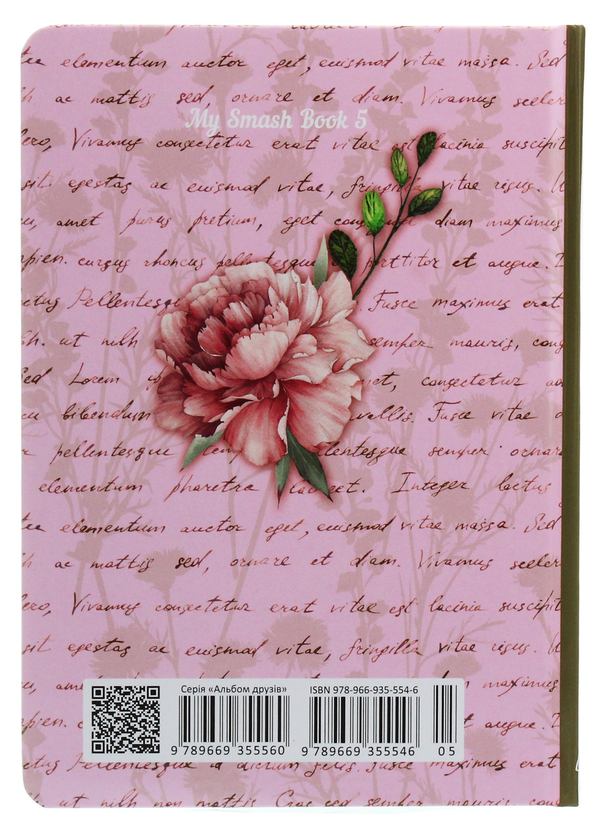 elementum auctor eget, euismod vitae massa. Sed
ac mattis sed, ornare et diam. Vivamus sceler
My Smash Book 5
ero, Vivamus consectetur erat vitae est lacinia suscipit
sit egestas ac euismod vitae, fringilla vitae risus. U
cu, amet purus pretium, eget diam maximus
apien. cursus rhoncus pellentesque porttitor et augue. I
ctus Pellentesqu Fusce maximus erat
h. ut nibh semper mauris, cong
Sed Lorem et, consectetur ad
cu bibendum Fusce vitae
r pellentesque semper ornar
elementum pharetra laoreet. Integer lectus
elementum auctor eget, euismod vitae massa. Sed
h ac mattis sed, ornare et diam. Vivamus sceler
ero, Vivamus consectetur erat vitae est lacinia suscipit
sit egestas ac euismod vitae, fringilla vitae risus. U
Серія «Альбом друзів» ISBN 978-966-935-554-6
apien. t augue. I
9 789669 355560 9 789669 355546 05
dictum felis. Fusce maximus erat
h. ut nibh non mattis Cras sed semper mauris, cong